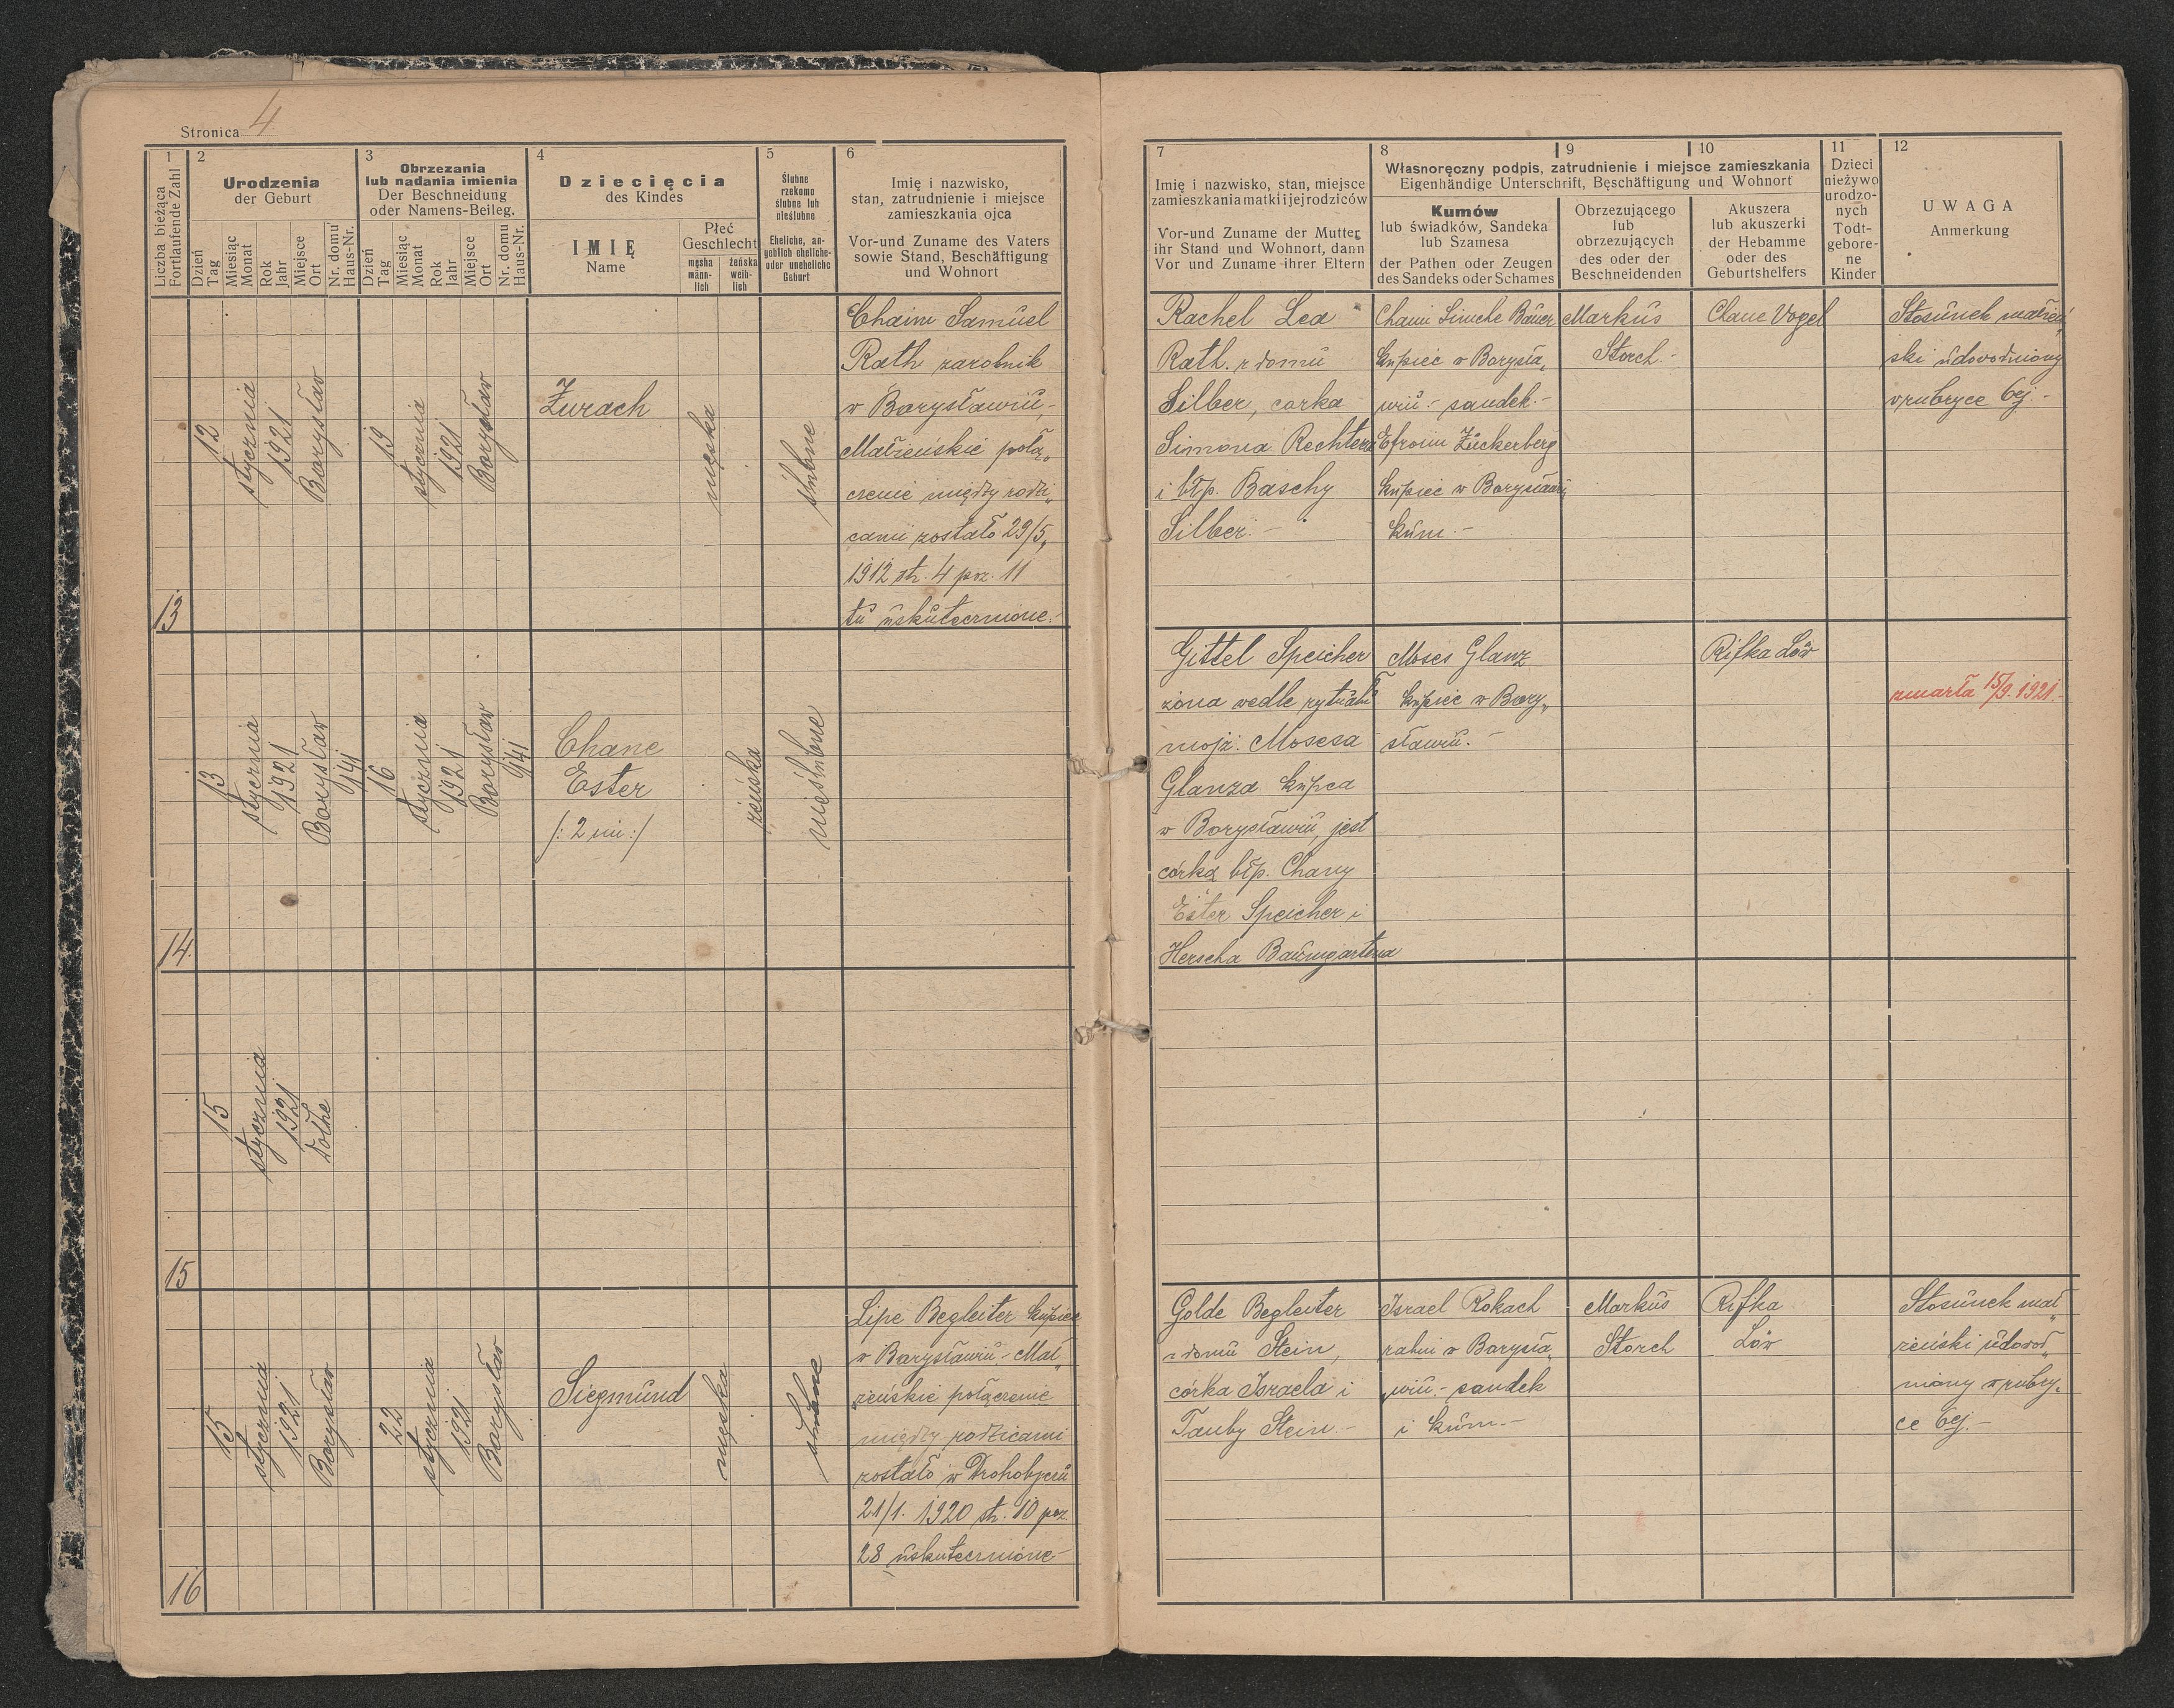 Stronica 4
1
Liczba bieżąca
Fortlaufende Zahl
2
Urodzenia
der Geburt
Dzień
Tag
Miesiąc
Monat
Rok
Jahr
Miejsce
Ort
Nr. domu
Haus-Nr.
3
Obrzezania
lub nadania imienia
Der Beschneidung
oder Namens-Beileg.
Dzień
Tag
Miesiąc
Monat
Rok
Jahr
Miejsce
Ort
Nr. domu
Haus-Nr.
4
Dziecięcia
des Kindes
IMIĘ
Name
Płeć
Geschlecht
męska
männ-
lich
żeńska
weib-
lich
5
Ślubne
rzekomo
ślubne lub
nieślubne
Eheliche, an-
geblich eheliche-
oder uneheliche
Geburt
6
Imię i nazwisko,
stan, zatrudnienie i miejsce
zamieszkania ojca
Vor-und Zuname des Vaters
sowie Stand, Beschäftigung
und Wohnort
7
Imię i nazwisko, stan, miejsce
zamieszkania matki i jej rodziców
Vor-und Zuname der Mutter
ihr Stand und Wohnort, dann
Vor und Zuname ihrer Eltern
8
9
10
Własnoręczny podpis, zatrudnienie i miejsce zamieszkania
Eigenhändige Unterschrift, Beschäftigung und Wohnort
Kumów
lub świadków, Sandeka
lub Szamesa
der Pathen oder Zeugen
des Sandeks oder Schames
Obrzezującego
lub
obrzezujących
des oder der
Beschneidenden
Akuszera
lub akuszerki
der Hebamme
oder des
Geburtshelfers
11
Dzieci
nieżywo
urodzo-
nych
Todt-
gebore-
ne
Kinder
12
UWAGA
Anmerkung
13
12
stycznia
1921
Borysław
19
stycznia
1921
Borysław
Żurach
męska
ślubne
Chaim Samuel
Rath zarobnik
w Borysławiu -
Małżeńskie połą„
czenie między rodzi„
cami zostało 29/5,
1912 str. 4 poz. 11
tu uskutecznione.-
Rachel Lea
Rath z domu
Silber, córka
Simona Rechtera
i błp. Baschy
Silber. -
Chaim Simche Bauer
kupiec w Borysła„
wiu - sandek. -
Efroim Zuckerberg
kupiec w Borysławiu
kum. -
Markus
Storch. -
Chane Vogel
Stosunek małżeń„
ski udowodniony
w rubryce 6ej -
14.
13
stycznia
1921
Borysław
141
16
stycznia
1921
Borysław
941
Chane
Ester
/: 2 im :/
żeńska
nieślubne
Gittel Speicher
żona wedle rytuału
mojż. Mosesa
Glanza kupca
w Borysławiu, jest
córką błp. Chany
Ester Speicher i
Herscha Baumgartena
Moses Glanz
kupiec w Bory„
sławiu. -
Rifka Löw
zmarła 15/9. 1921.-
15
15
stycznia
1921
Dołhe
16
15
stycznia
1921
Borysław
22
stycznia
1921
Borysław
Siegmund
męska
ślubne
Lipe Begleiter kupiec
w Borysławiu - Mał„
żeńskie połączenie
między rodzicami
zostało w Drohobyczu
21/1. 1920 str. 10 poz.
28 uskutecznione -
Golde Begleiter
z domu Stein,
córka Israela i
Tauby Stein. -
Israel Rokach
rabin w Borysła„
wiu. - sandek
i kum. -
Markus
Storch
Rifka
Löw
Stosunek mał„
żeński udowod„
niony w rubry„
ce 6ej. -